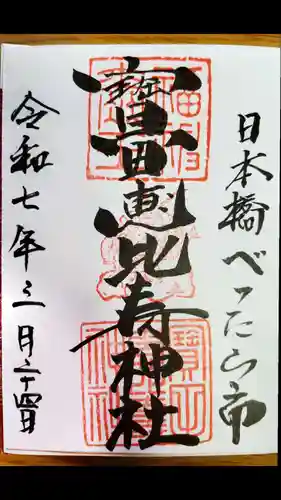 日本橋べったら市
寶田恵比寿神社
令和七年三月二十四日